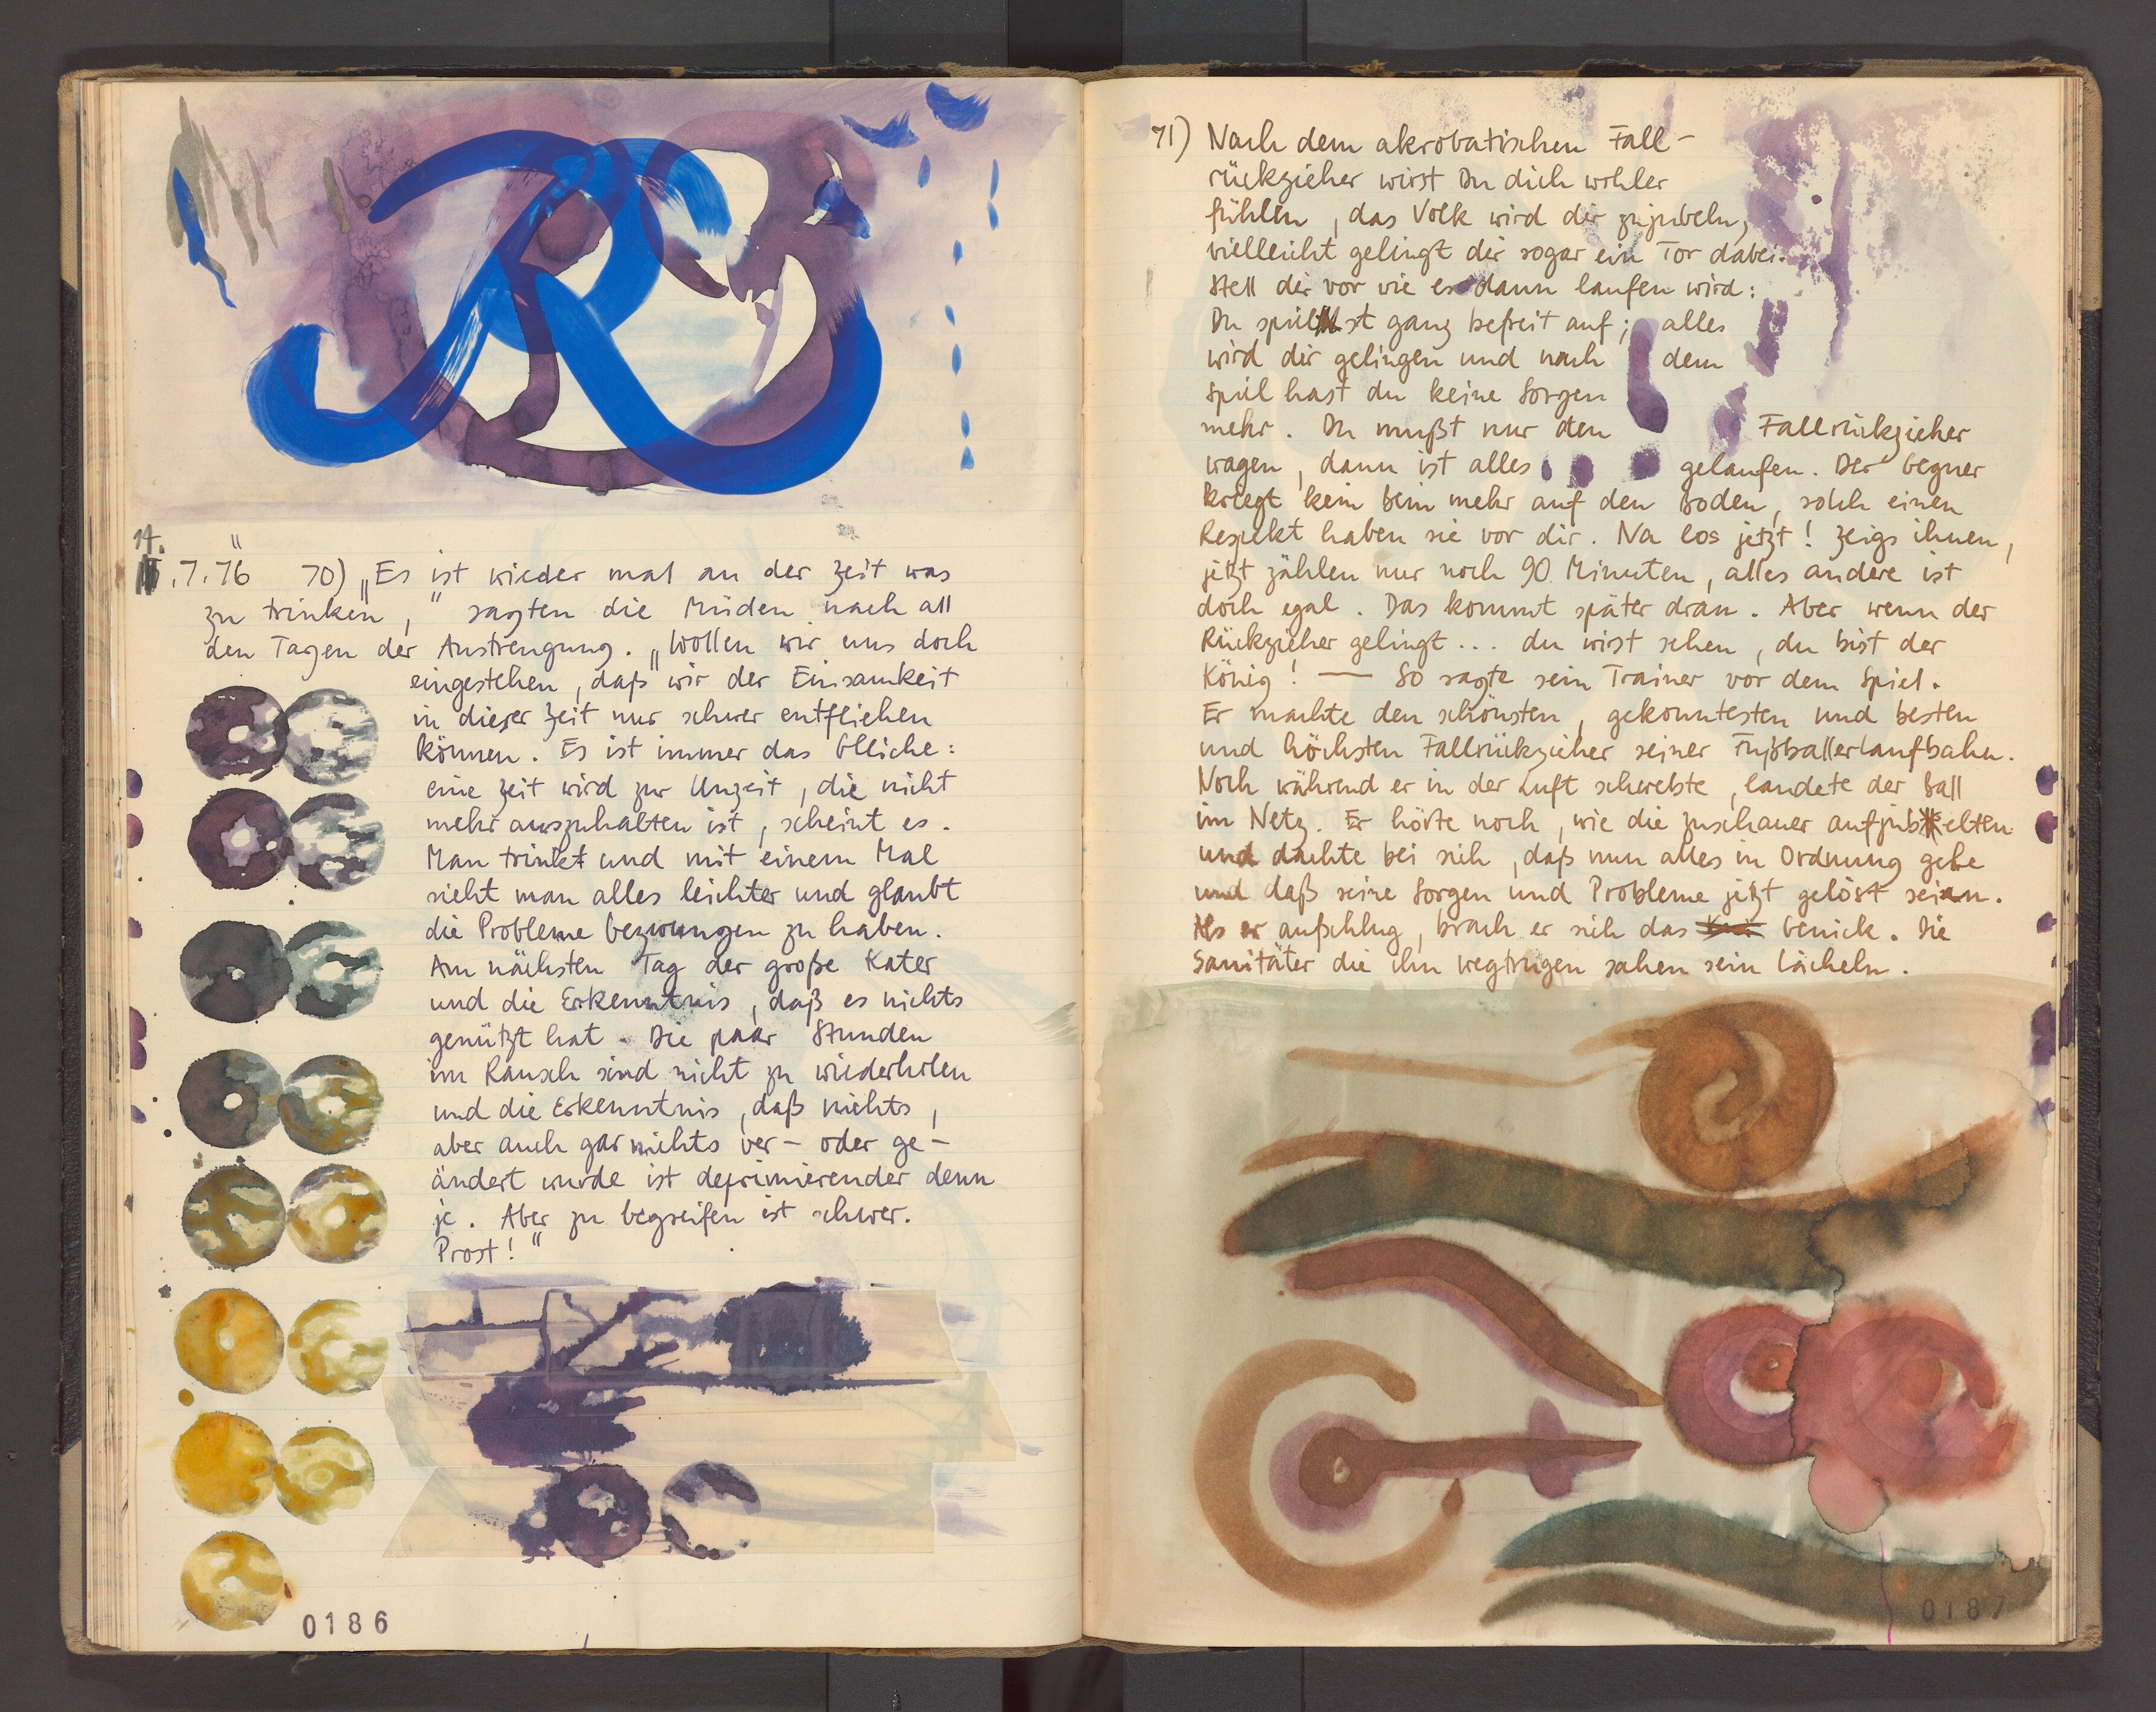 14.
7.76 70) „Es ist wieder mal an der Zeit was
zu trinken," sagten die Müden nach all
den Tagen der Anstrengung. „Wollen wir uns doch
eingestehen, daß wir der Einsamkeit
in dieser Zeit nur schwer entfliehen
können. Es ist immer das Gleiche:
eine Zeit wird zur Unzeit, die nicht
mehr auszuhalten ist, scheint es.
Man trinkt und mit einem Mal
sieht man alles leichter und glaubt
die Probleme bezwungen zu haben.
Am nächsten Tag der große Kater
und die Erkenntnis, daß es nichts
genützt hat. Die paar Stunden
im Rausch sind nicht zu wiederholen
und die Erkenntnis, daß nichts,
aber auch gar nichts ver- oder ge-
ändert wurde ist deprimierender denn
je. Aber zu begreifen ist schwer.
Prost!"
0186
71) Nach dem akrobatischen Fall-
rückzieher wirst Du dich wohler
fühlen, das Volk wird dir zujubeln,
vielleicht gelingt dir sogar ein Tor dabei.
Stell dir vor wie es dann laufen wird:
Du spielst ganz befreit auf; alles
wird dir gelingen und nach dem
Spiel hast du keine Sorgen
mehr. Du mußt nur den Fallrückzieher
wagen, dann ist alles gelaufen. Der Gegner
kriegt kein Bein mehr auf den Boden, solch einen
Respekt haben sie vor dir. Na los jetzt! Zeigs ihnen,
jetzt zählen nur noch 90 Minuten, alles andere ist
doch egal. Das kommt später dran. Aber wenn der
Rückzieher gelingt... du wirst sehen, du bist der
König! — So sagte sein Trainer vor dem Spiel.
Er machte den schönsten, gekonntesten und besten
und höchsten Fallrückzieher seiner Fußballerlaufbahn.
Noch während er in der Luft schwebte, landete der Ball
im Netz. Er hörte noch, wie die Zuschauer aufjubelten
und dachte bei sich, daß nun alles in Ordnung gehe
und daß seine Sorgen und Probleme jetzt gelöst seien.
Als er aufschlug, brach er sich das Genick. Die
Sanitäter die ihn wegtrugen sahen sein Lächeln.
0187